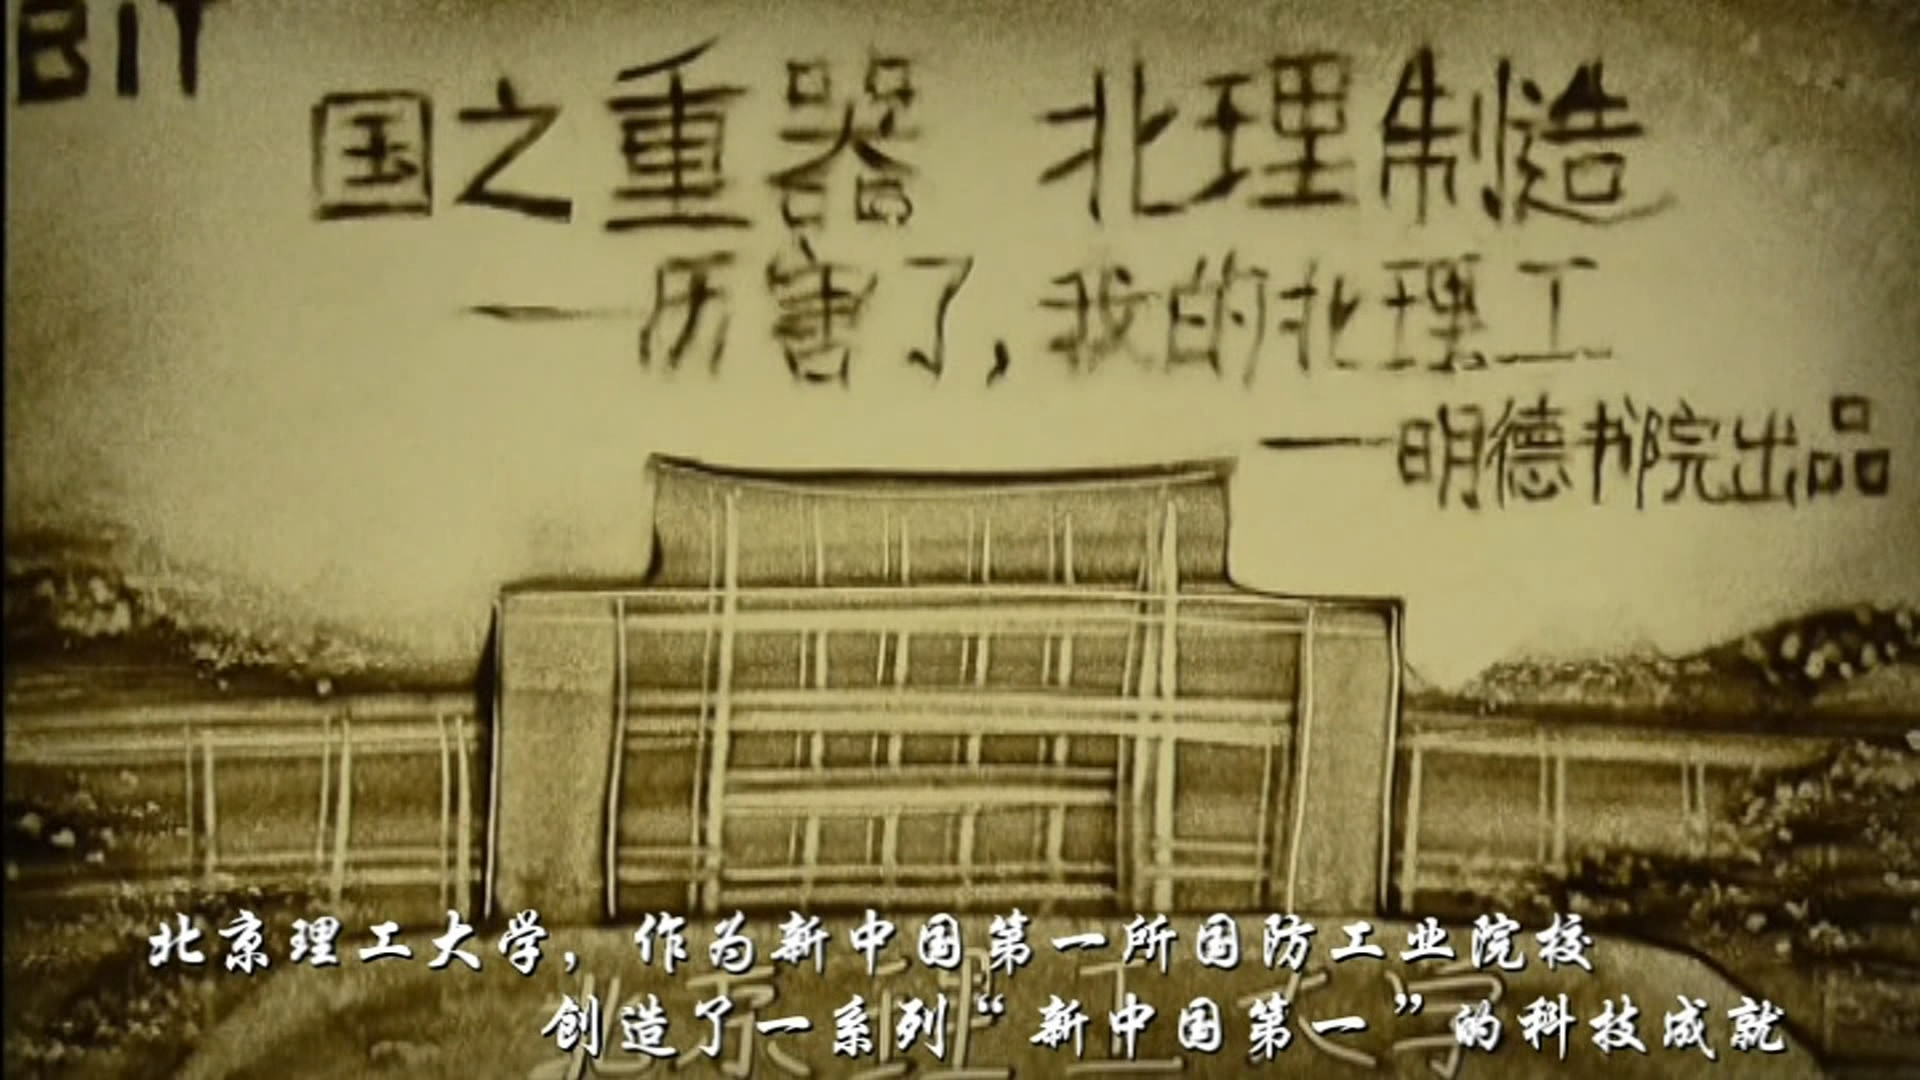 BIT
国之重器 北理制造
——厉害了,我的北理工
——明德书院出品
北京理工大学
北京理工大学，作为新中国第一所国防工业院校
创造了一系列“新中国第一”的科技成就